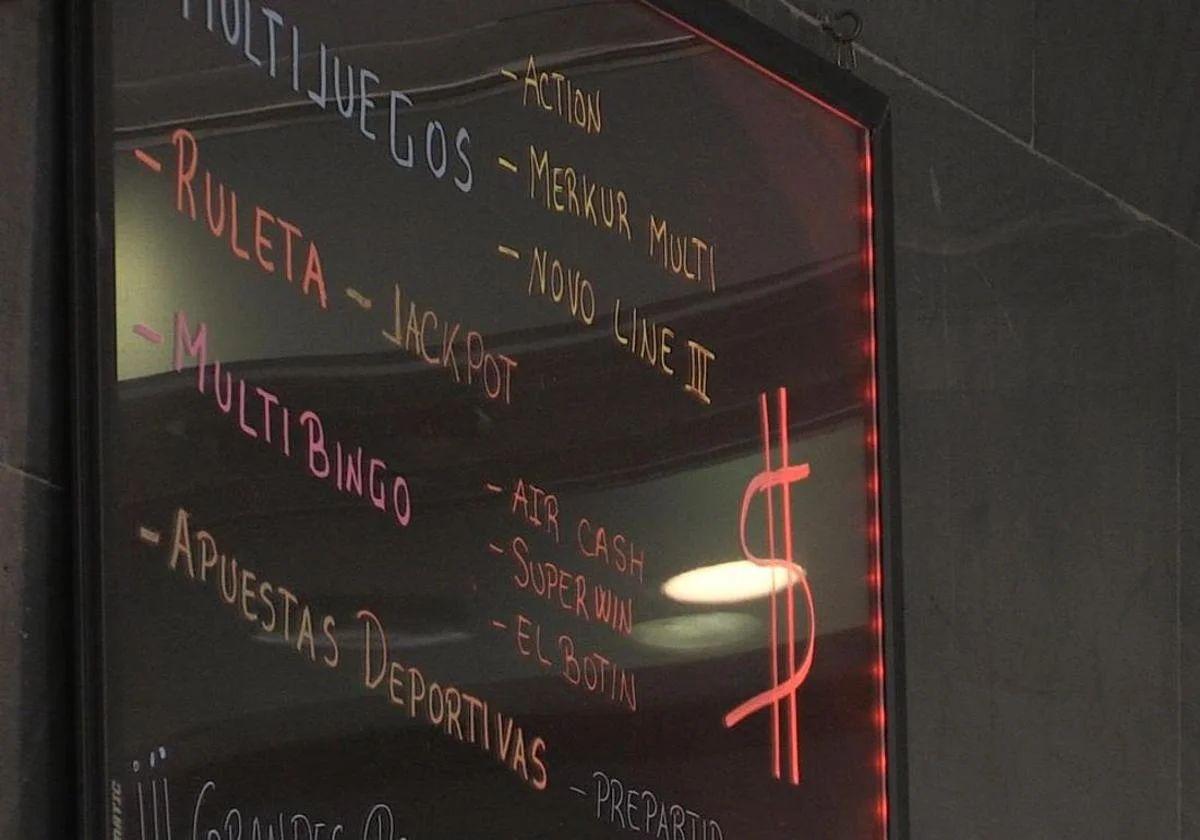 MULTIJUEGOS
- ACTION
- MERKUR MULTI
- NOVO LINE III
- RULETA - JACKPOT
- MULTIBINGO
- AIR CASH
- SUPERWIN
- EL BOTIN
- APUESTAS DEPORTIVAS - PREPARTID
¡¡¡ GRANDES
$